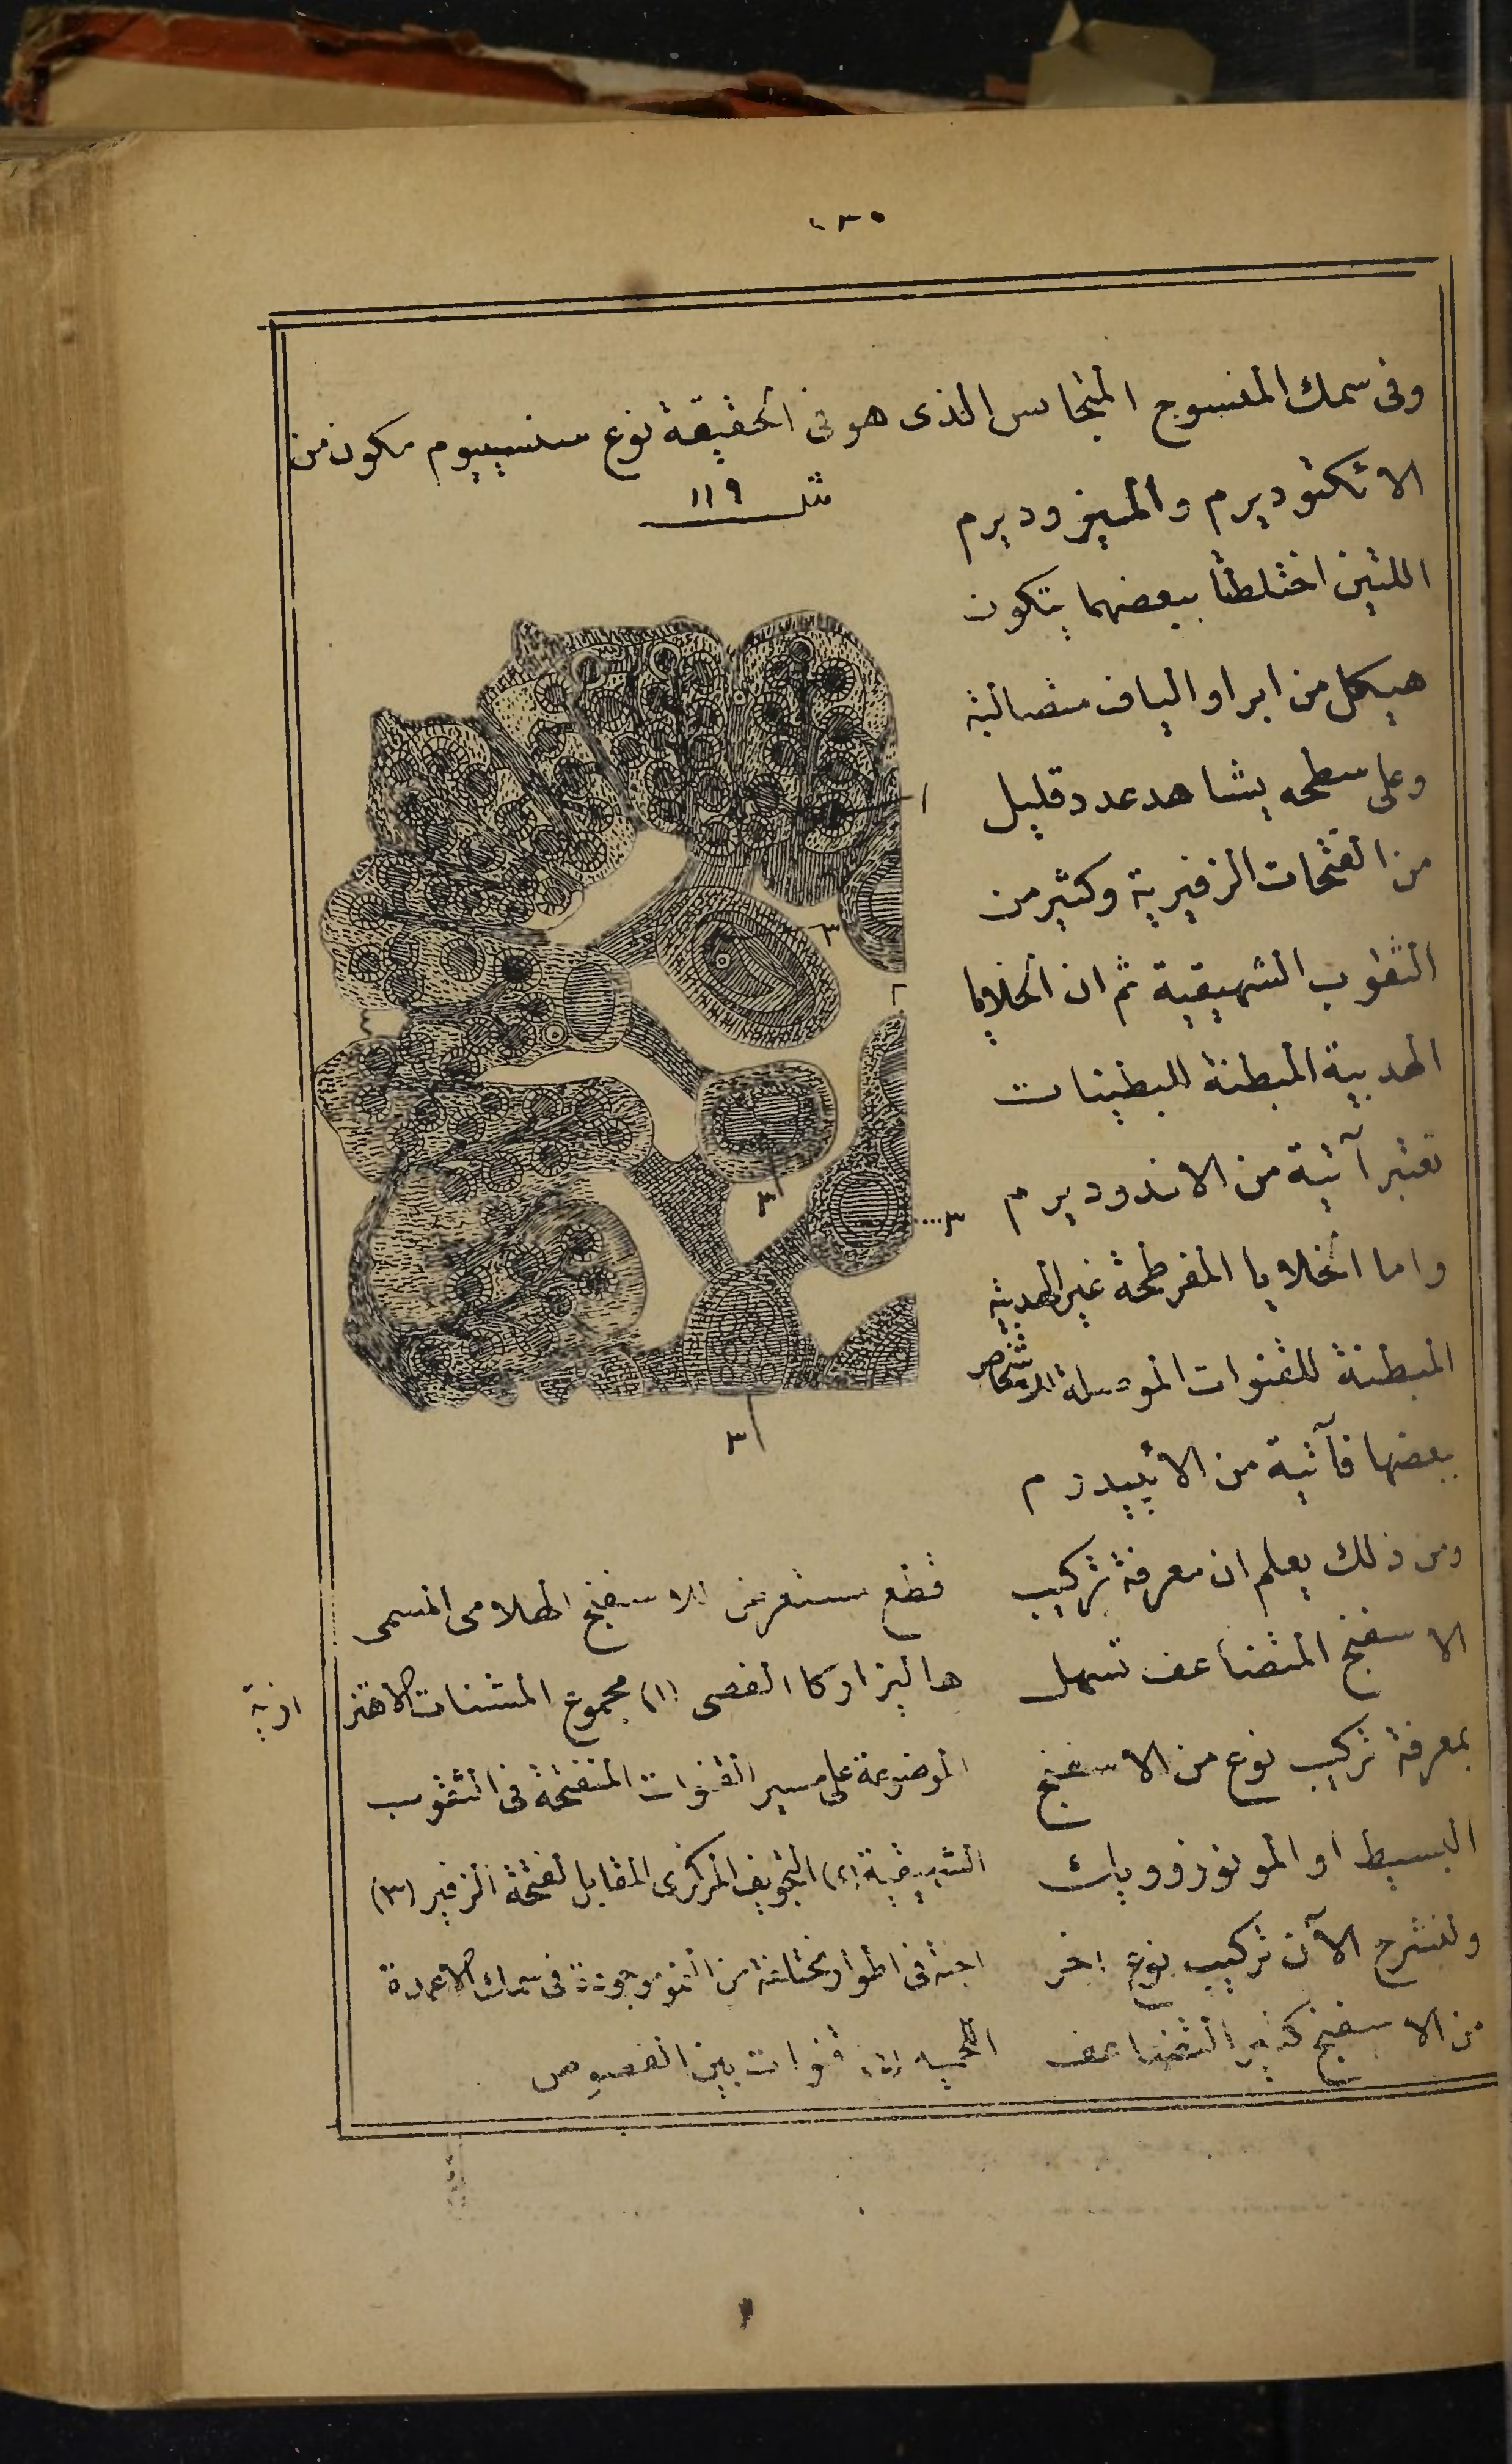 ٢٣٠
وفى سمك المنسوج المتجانس الذى هو فى الحقيقة نوع سنسيتيوم مكون من
شكل ١١٩
الاتكتوديرم والميزوديرم
اللتين اختلطتا ببعضهما يتكون
هيكل من ابر او الياف متصالبة
وعلى سطحه يشاهد عدد قليل
من الفتحات الزفيرية وكثير من
الثقوب الشهيقية ثم ان الخلايا
الهدبية المبطنة للبطينات
تعتبر آتية من الاندوديرم
واما الخلايا المفرطحة غير الهدبية
المبطنة للقنوات الموصلة
بعضها فآتية من الابيدرم
ومن ذلك يعلم ان معرفة تركيب
الاسفنج المتضاعف تسهل
بمعرفة تركيب نوع من الاسفنج
البسيط او المونوزوويك
ولنشرح الآن تركيب نوع اخر
من الاسفنج كثير التضاعف
١
٣
٢
٣
٣
٣
قطع مستعرض للاسفنج الهلامى المسمى
هاليزاركا الفصى (١) مجموع المثنات الاهتز
ازية
الموضوعة على مسير القنوات المنفتحة فى الثقوب
الشهيقية (٢) التجويف المركزى المقابل لفتحة الزفير (٣)
اجنة فى اطوار مختلفة من النمو موجودة فى سمك الاعمدة
اللحمية قنوات بين الفصوص